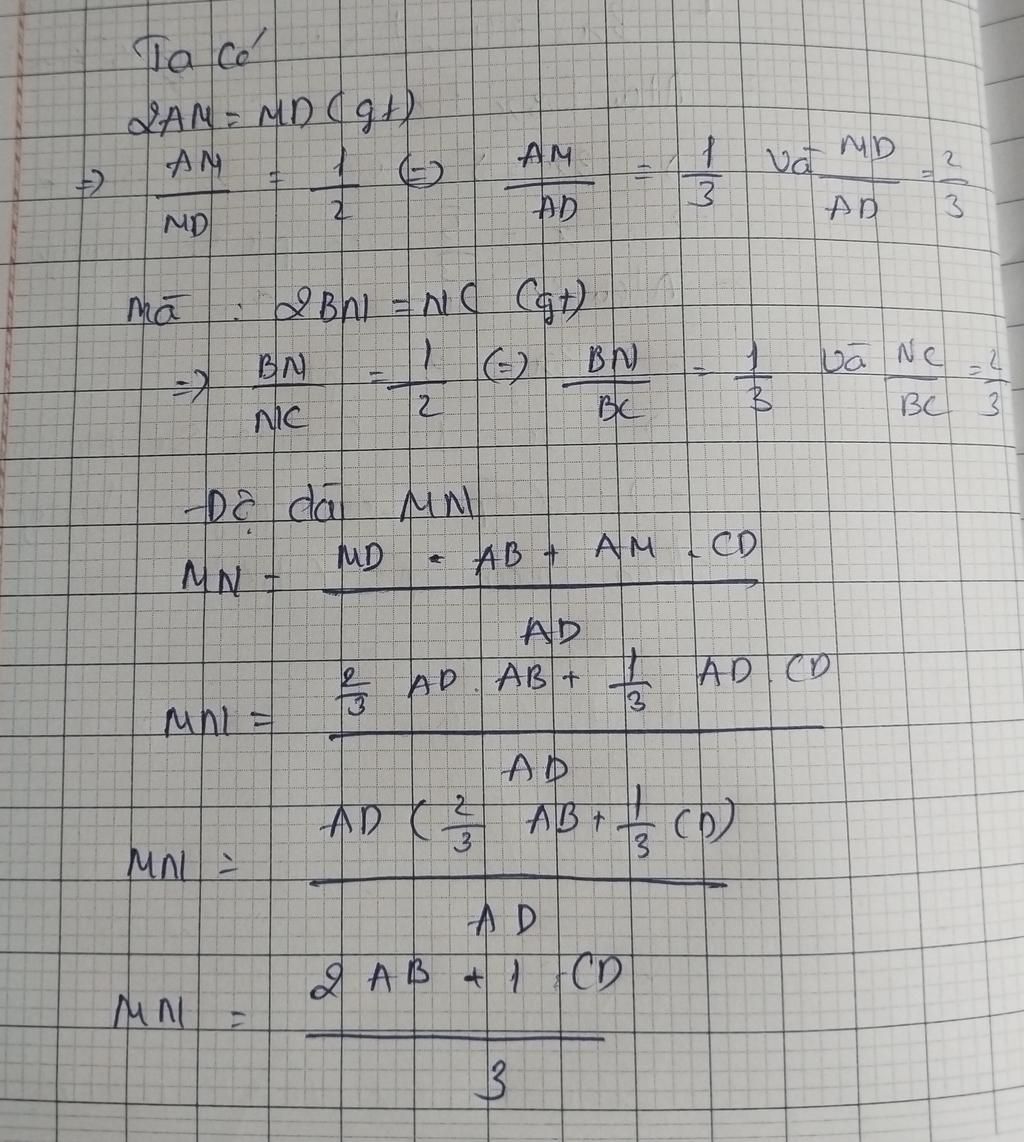 Ta có
2AM = MD (gt)
=> AM/MD = 1/2 (=) AM/AD = 1/3 và MD/AD = 2/3
mà : 2BN = NC (gt)
=> BN/NC = 1/2 (=) BN/BC = 1/3 và NC/BC = 2/3
Độ dài MN
MN = (MD . AB + AM . CD)/AD
MN = (2/3 AD . AB + 1/3 AD . CD)/AD
MN = AD (2/3 AB + 1/3 CD)/AD
MN = (2 AB + 1 . CD)/3